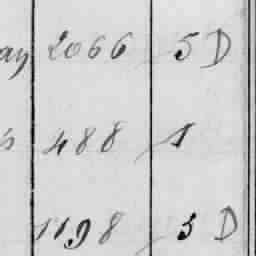 ay 2066 5 D
s 488 1
1198 3 D